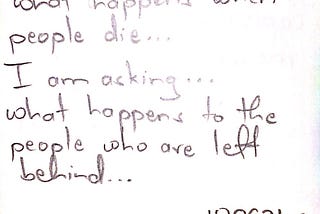 what happens when
people die...
I am asking...
what happens to the
people who are left
behind...